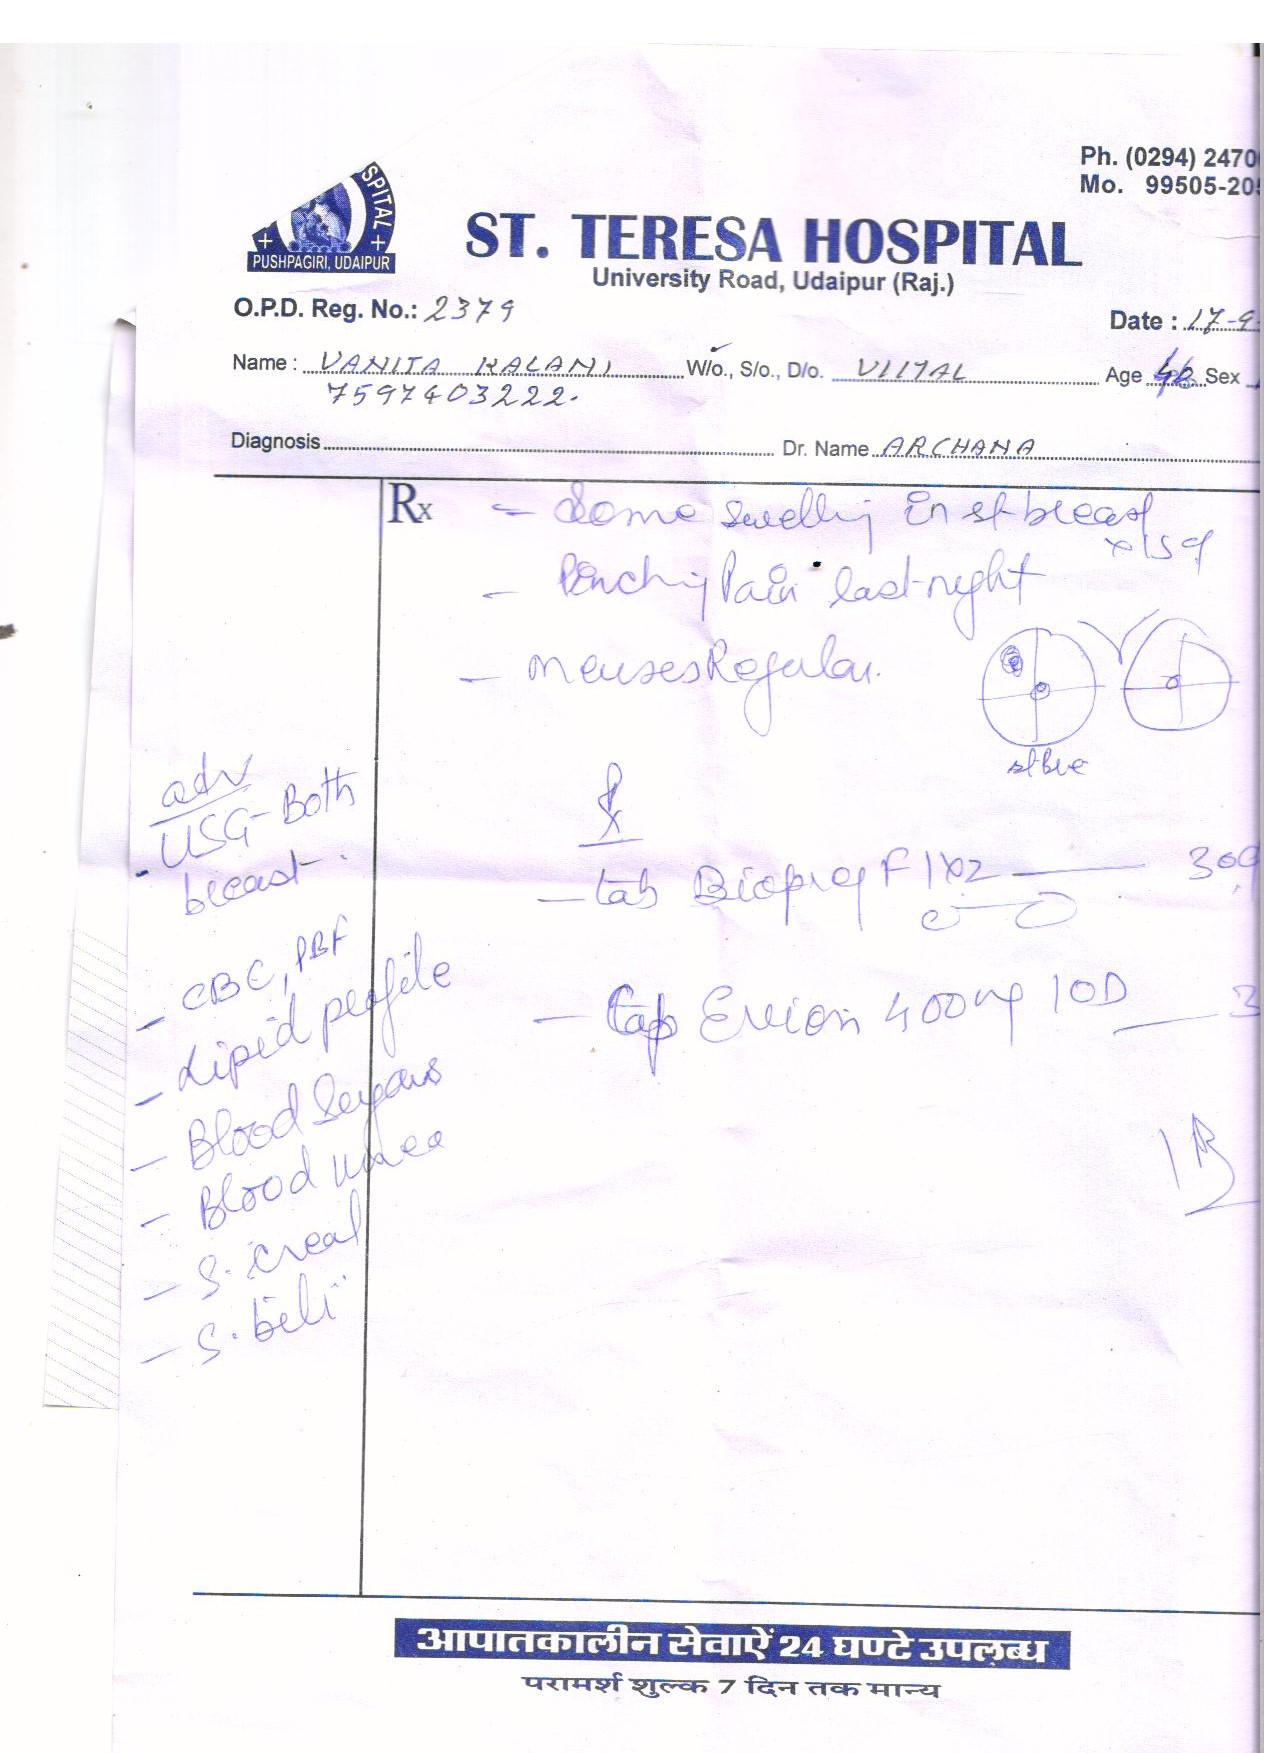 Ph. (0294) 2470
Mo. 99505-205
SPITAL +
+
PUSHPAGIRI, UDAIPUR
ST. TERESA HOSPITAL
University Road, Udaipur (Raj.)
O.P.D. Reg. No.: 2379
Date : 17-9
Name : VANITA KALANI W/o., S/o., D/o. Age Sex
7597403222.
Diagnosis Dr. Name ARCHANA
Rx - Some swelling in breast
- Pain last night
- menses Regular.
adv
USG - Both
breast
Rx
- tab F 1x2 — 30
- CBC, PBF
- Lipid profile
- Cap Evion 400mg 1OD — 3
- Blood Sugars
- Blood urea
- S. creat
- S. bili
आपातकालीन सेवाऐं 24 घण्टे उपलब्ध
परामर्श शुल्क 7 दिन तक मान्य